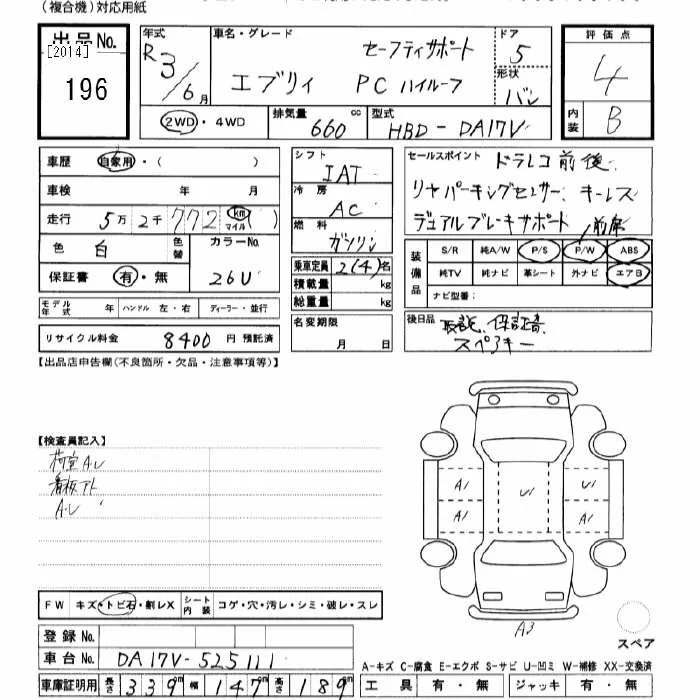 (複合機)対応用紙
出品No. [2014] 196
年式 R3/6月
車名・グレード セーフティサポート
エブリィ PC ハイルーフ
ドア 5
形状 バン
評価点 4
内装 B
2WD・4WD
排気量 660 cc
型式 HBD-DA17V
車歴 自家用・( )
車検 年 月
走行 5万2千772 km マイル )
色 白 色替 カラーNo. 26U
保証書 有・無
モデル年式 年 ハンドル 左・右 ディーラー・並行
リサイクル料金 8400 円 預託済
シフト IAT
冷房 AC
燃料 ガソリン
乗車定員 2(4)名
積載量 kg
総重量 kg
名変期限 月 日
セールスポイント ドラレコ前後
リヤパーキングセンサー、キーレス
デュアルブレーキサポート 前席
装備品 S/R 純A/W P/S P/W ABS
純TV 純ナビ 革シート 外ナビ エアB
ナビ型番:
後日品 取説、保証書
スペアキー
【出品店申告欄(不良箇所・欠品・注意事項等)】
【検査員記入】
荷室A.U
看板アト
A.U
A1 U1 U1
A1 A1
A3
スペア
FW キズ・トビ石・割レX シート内装 コゲ・穴・汚レ・シミ・破レ・スレ
登録No.
車台No. DA17V-525111
車庫証明用 長さ 339 幅 147 高さ 189
A-キズ C-腐食 E-エクボ S-サビ U-凹ミ W-補修 XX-交換済
工具 有・無 ジャッキ 有・無